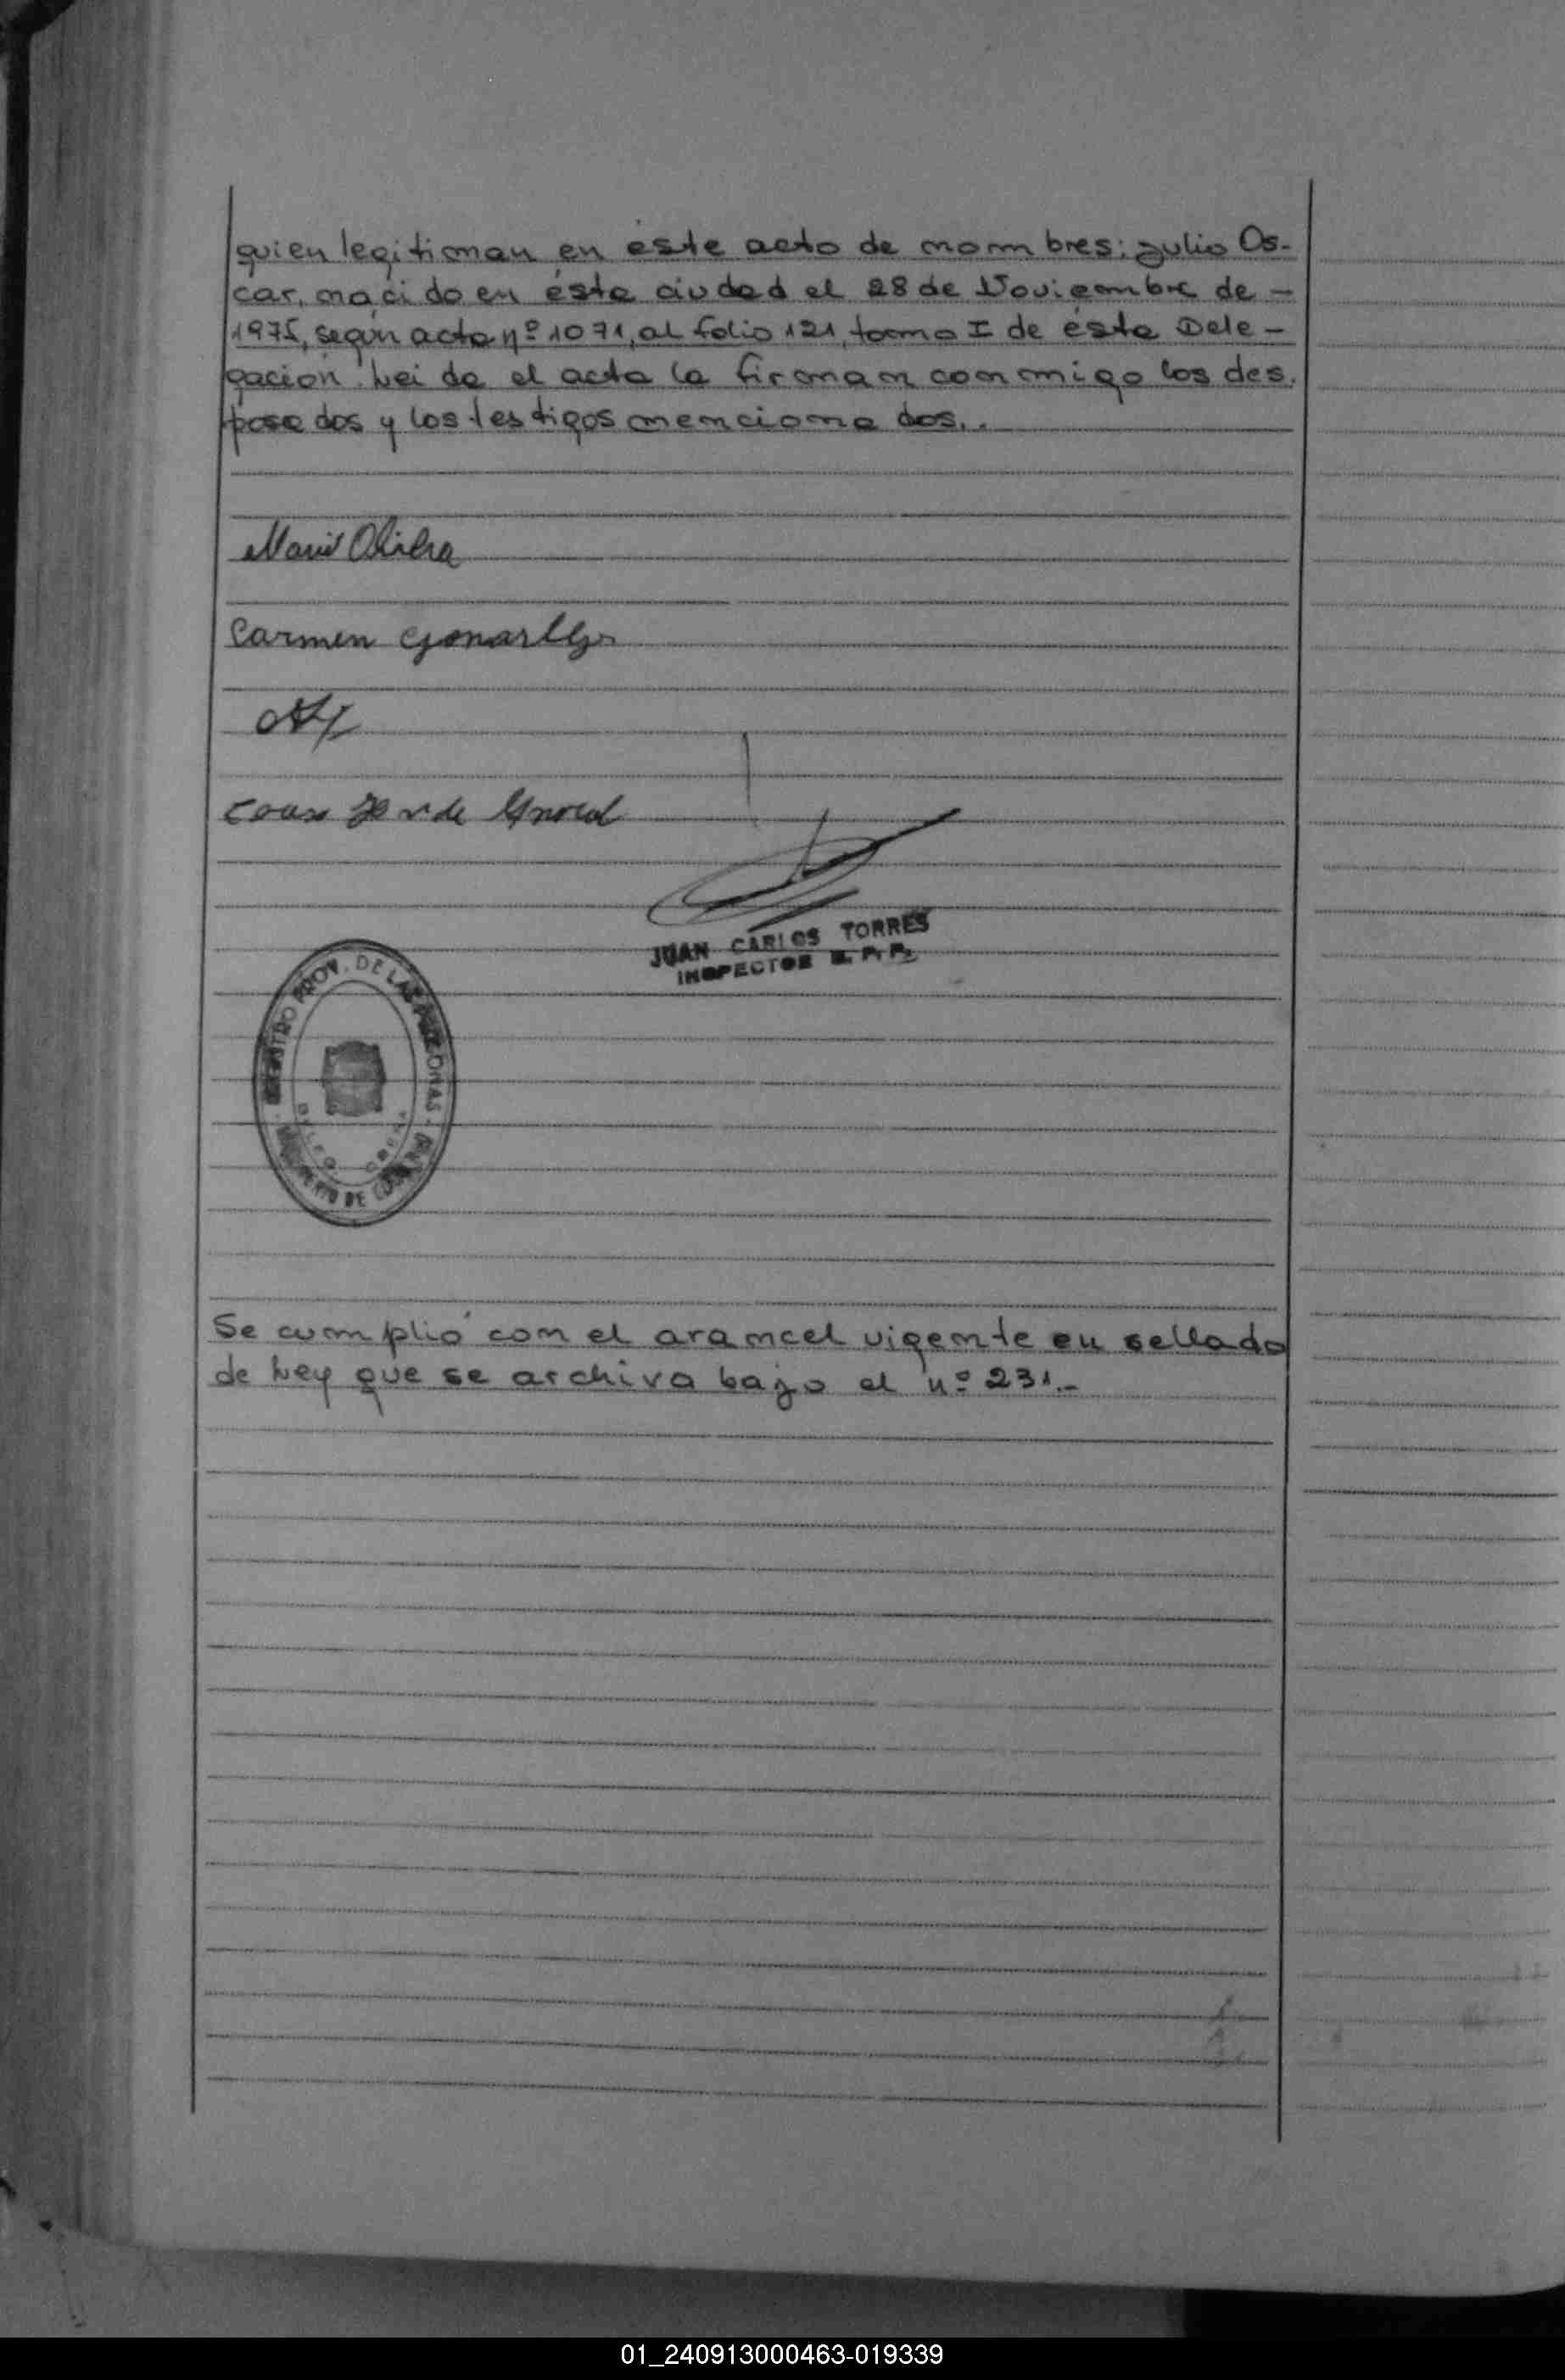 quien legitiman en éste acto de nombres: Julio Os-
car, nacido en ésta ciudad el 28 de Noviembre de -
1975, según acta nº 1071, al folio 121, tomo I de ésta Dele-
gación. Leida el acta la firman conmigo los des.
posados y los testigos mencionados..
Carmen
JUAN CARLOS TORRES
INSPECTOR R. P. P.
REGISTRO PROV. DE LAS PERSONAS
DE
Se cumplió con el arancel vigente en sellado
de Ley que se archiva bajo el nº 231.-
01_240913000463-019339